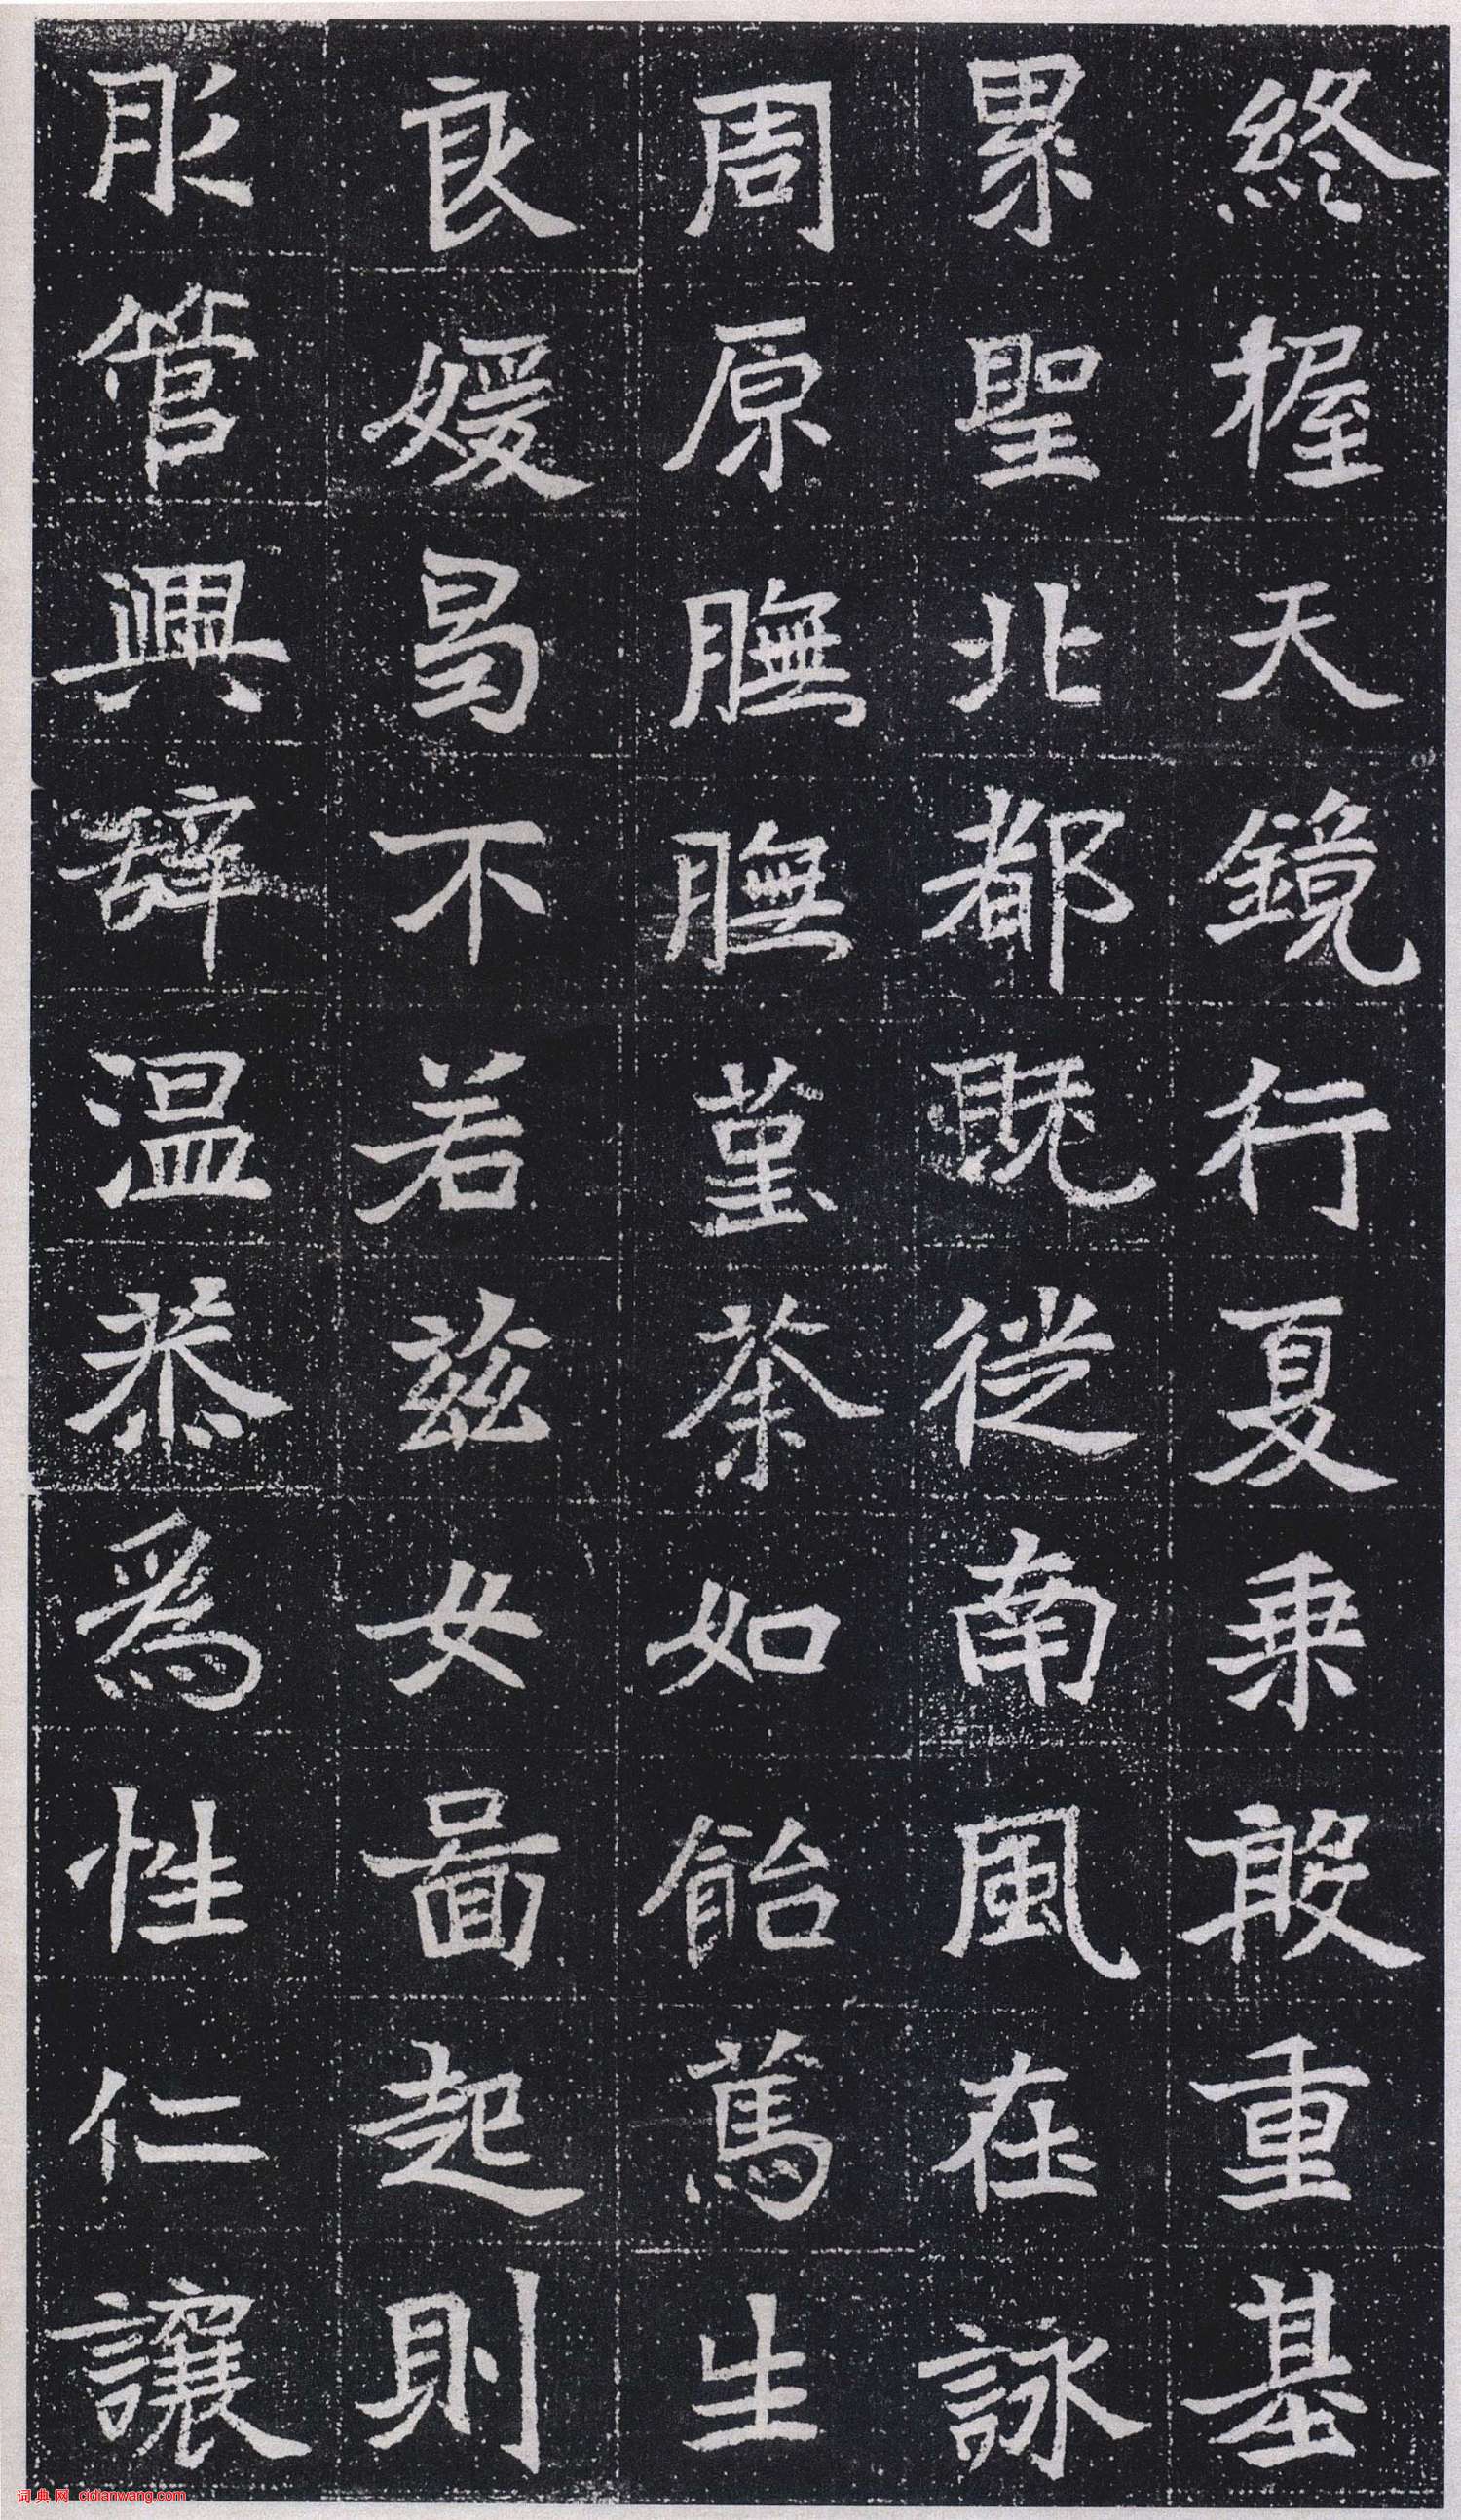 終握天鏡行夏乗殷重基
累聖北都既從南風在詠
周原膴膴菫荼如飴篤生
良媛曷不若兹女啚起則
肜管興辞温恭爲性仁讓
词典网 cidianwang.com